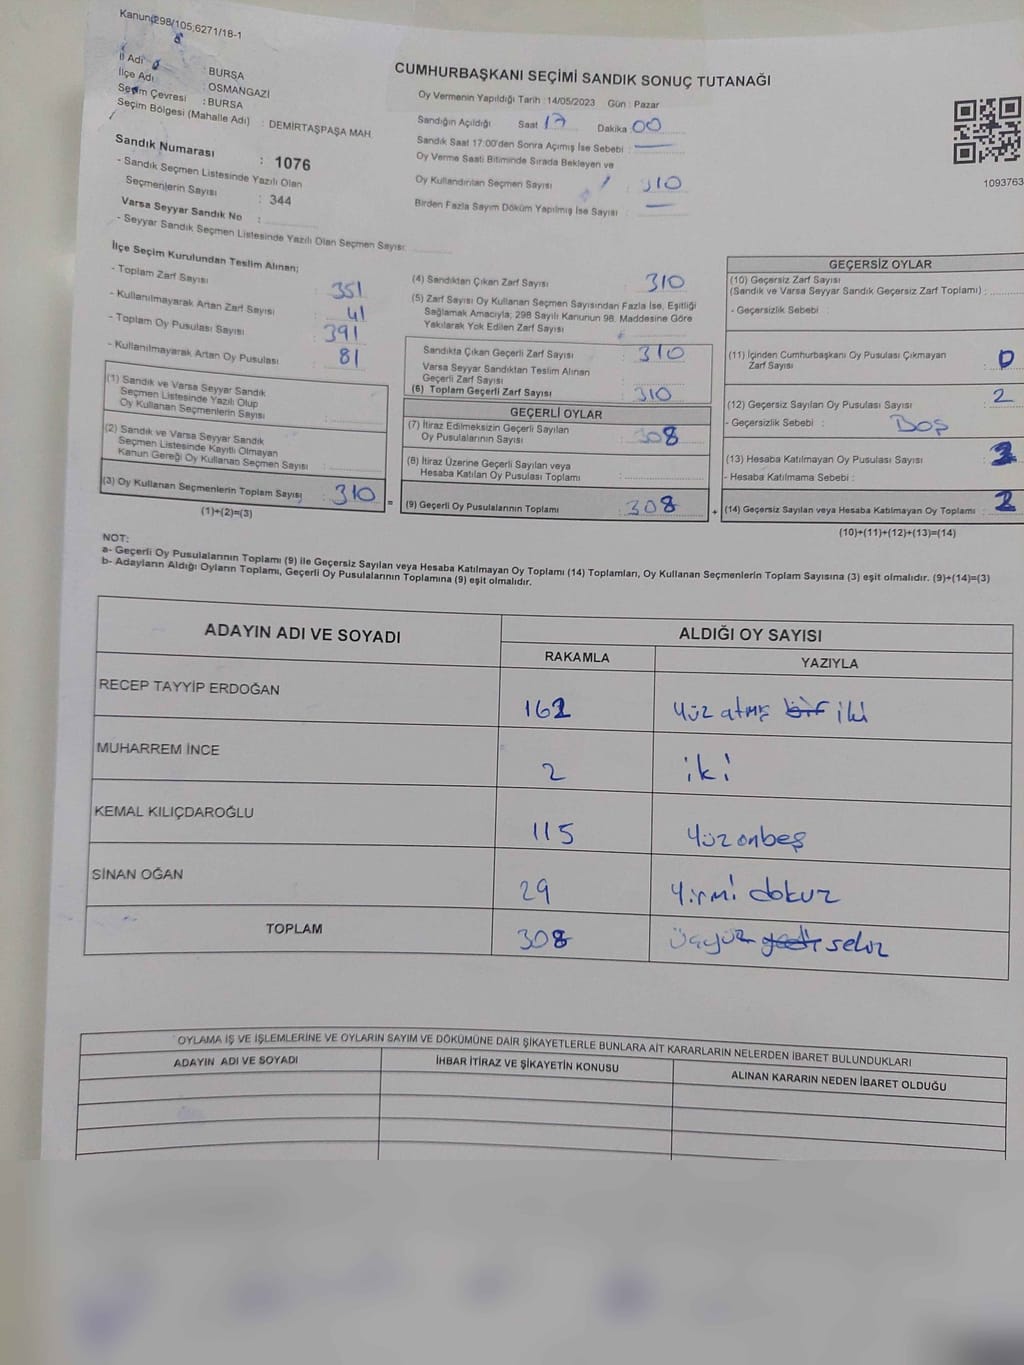 Kanun:298/105;6271/18-1
İl Adı : BURSA
İlçe Adı : OSMANGAZİ
Seçim Çevresi : BURSA
Seçim Bölgesi (Mahalle Adı) : DEMİRTAŞPAŞA MAH.
Sandık Numarası : 1076
- Sandık Seçmen Listesinde Yazılı Olan
Seçmenlerin Sayısı : 344
Varsa Seyyar Sandık No :
- Seyyar Sandık Seçmen Listesinde Yazılı Olan Seçmen Sayısı:
CUMHURBAŞKANI SEÇİMİ SANDIK SONUÇ TUTANAĞI
Oy Vermenin Yapıldığı Tarih : 14/05/2023 Gün : Pazar
Sandığın Açıldığı Saat 17 Dakika 00
Sandık Saat 17:00'den Sonra Açımış İse Sebebi : —
Oy Verme Saati Bitiminde Sırada Bekleyen ve
Oy Kullandırılan Seçmen Sayısı : 310
Birden Fazla Sayım Döküm Yapılmış İse Sayısı : —
1093763
İlçe Seçim Kurulundan Teslim Alınan;
- Toplam Zarf Sayısı : 351
- Kullanılmayarak Artan Zarf Sayısı : 41
- Toplam Oy Pusulası Sayısı : 391
- Kullanılmayarak Artan Oy Pusulası : 81
(1) Sandık ve Varsa Seyyar Sandık
Seçmen Listesinde Yazılı Olup
Oy Kullanan Seçmenlerin Sayısı :
(2) Sandık ve Varsa Seyyar Sandık
Seçmen Listesinde Kayıtlı Olmayan
Kanun Gereği Oy Kullanan Seçmen Sayısı :
(3) Oy Kullanan Seçmenlerin Toplam Sayısı : 310 =
(1)+(2)=(3)
(4) Sandıktan Çıkan Zarf Sayısı : 310
(5) Zarf Sayısı Oy Kullanan Seçmen Sayısından Fazla İse, Eşitliği
Sağlamak Amacıyla; 298 Sayılı Kanunun 98. Maddesine Göre
Yakılarak Yok Edilen Zarf Sayısı :
Sandıkta Çıkan Geçerli Zarf Sayısı : 310
Varsa Seyyar Sandıktan Teslim Alınan
Geçerli Zarf Sayısı :
(6) Toplam Geçerli Zarf Sayısı : 310
GEÇERLİ OYLAR
(7) İtiraz Edilmeksizin Geçerli Sayılan
Oy Pusulalarının Sayısı : 308
(8) İtiraz Üzerine Geçerli Sayılan veya
Hesaba Katılan Oy Pusulası Toplamı :
(9) Geçerli Oy Pusulalarının Toplamı : 308 +
GEÇERSİZ OYLAR
(10) Geçersiz Zarf Sayısı
(Sandık ve Varsa Seyyar Sandık Geçersiz Zarf Toplamı) :
- Geçersizlik Sebebi :
(11) İçinden Cumhurbaşkanı Oy Pusulası Çıkmayan
Zarf Sayısı : 0
(12) Geçersiz Sayılan Oy Pusulası Sayısı : 2
- Geçersizlik Sebebi : Boş
(13) Hesaba Katılmayan Oy Pusulası Sayısı :
- Hesaba Katılmama Sebebi :
(14) Geçersiz Sayılan veya Hesaba Katılmayan Oy Toplamı : 2
(10)+(11)+(12)+(13)=(14)
NOT:
a- Geçerli Oy Pusulalarının Toplamı (9) ile Geçersiz Sayılan veya Hesaba Katılmayan Oy Toplamı (14) Toplamları, Oy Kullanan Seçmenlerin Toplam Sayısına (3) eşit olmalıdır. (9)+(14)=(3)
b- Adayların Aldığı Oyların Toplamı, Geçerli Oy Pusulalarının Toplamına (9) eşit olmalıdır.
ADAYIN ADI VE SOYADI ALDIĞI OY SAYISI
RAKAMLA YAZIYLA
RECEP TAYYİP ERDOĞAN 162 Yüz atmış bir iki
MUHARREM İNCE 2 iki
KEMAL KILIÇDAROĞLU 115 Yüz onbeş
SİNAN OĞAN 29 Yirmi dokuz
TOPLAM 308 Üçyüz yedi sekiz
OYLAMA İŞ VE İŞLEMLERİNE VE OYLARIN SAYIM VE DÖKÜMÜNE DAİR ŞİKAYETLERLE BUNLARA AİT KARARLARIN NELERDEN İBARET BULUNDUKLARI
ADAYIN ADI VE SOYADI İHBAR İTİRAZ VE ŞİKAYETİN KONUSU ALINAN KARARIN NEDEN İBARET OLDUĞU